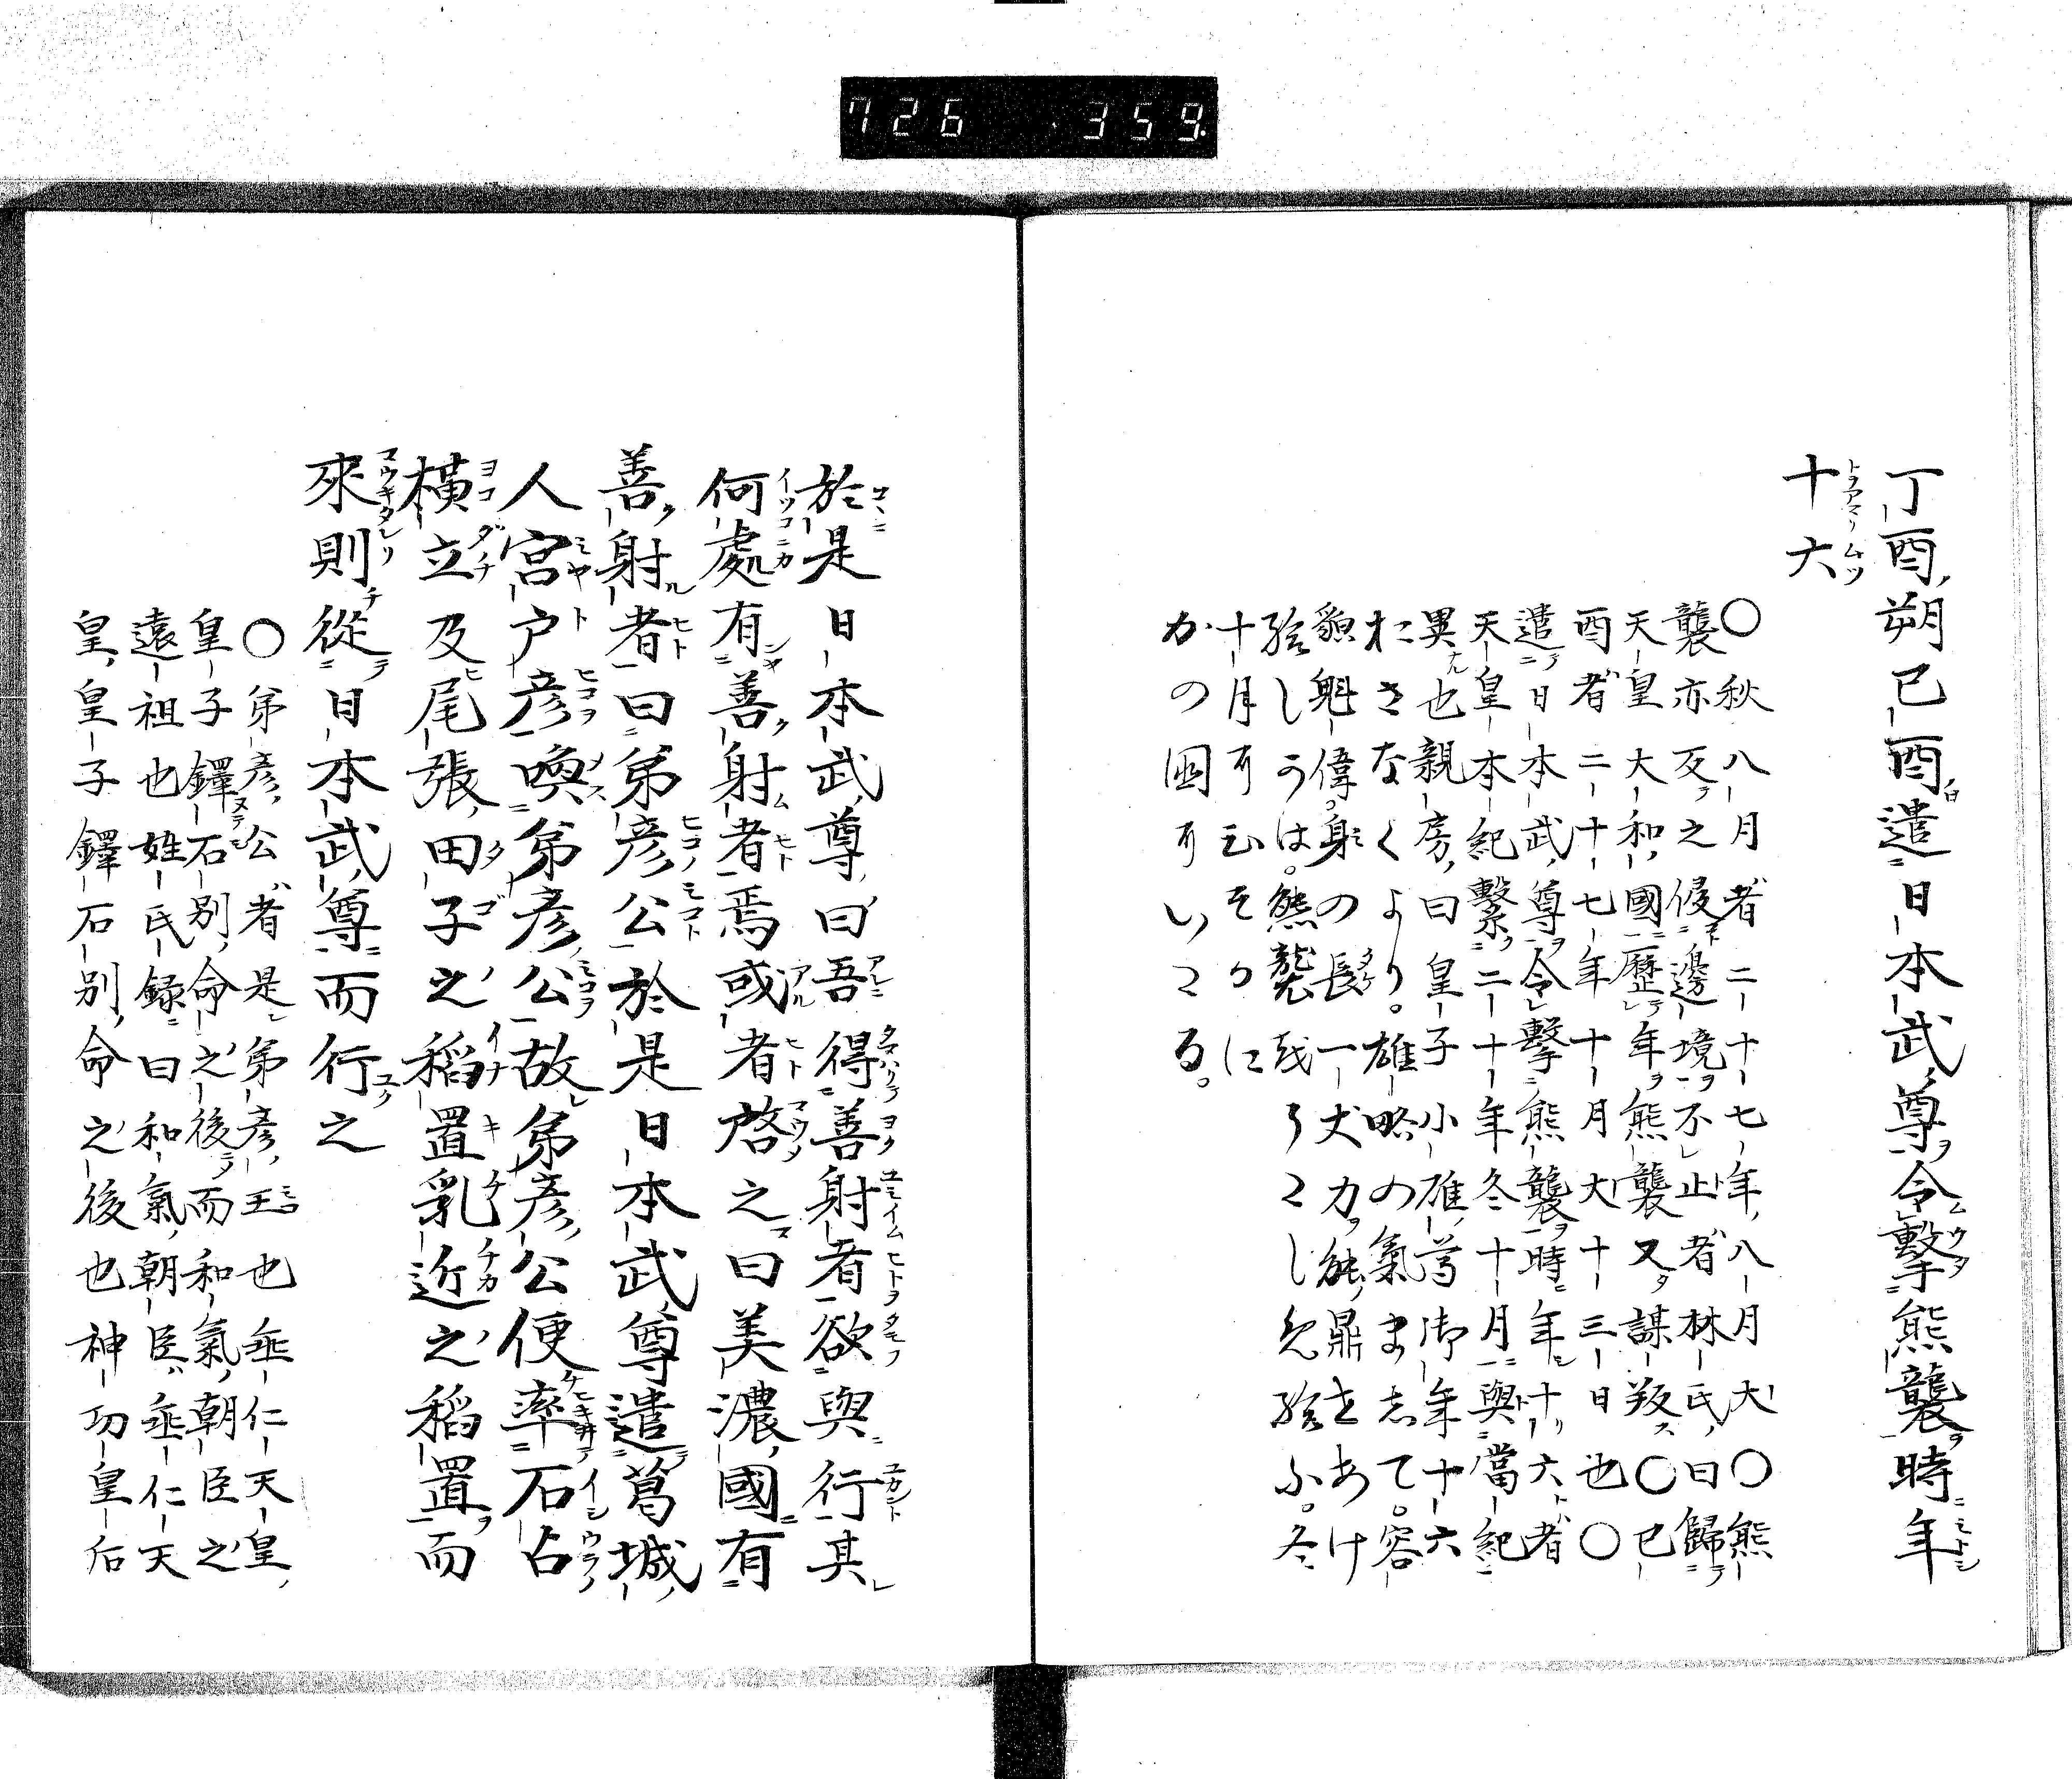 726 359
丁酉朔己酉遣日本武尊令擊熊襲時年
十六
〇秋八月者二十七年八月大〇熊
襲亦反之侵邊境不止者林氏曰歸
天皇大和國歷年熊襲又謀叛〇己
酉者二十七年十月大十三日也〇
遣日本武尊令擊熊襲時年十六者
天皇本紀繫二十年冬十月與當紀
異也親房曰皇子小碓尊御年十六
おさなくより。雄略の氣まして。容
貌魁偉。身の長一丈力能鼎をあけ
給しうは。熊襲をうたしめ給ふ。冬
十月ひそかに
かの國
於是日本武尊曰吾得善射者欲與行其
何處有善射者焉或者啓之曰美濃國有
善射者曰弟彦公於是日本武尊遣葛城
人宮戸彦喚弟彦公故弟彦公便率石占
横立及尾張田子之稻置乳近之稻置而
來則從日本武尊而行之
〇弟彦公者是弟彦王也垂仁天皇
皇子鐸石別命之後而和氣朝臣之
遠祖也姓氏録曰和氣朝臣垂仁天
皇皇子鐸石別命之後也神功皇后